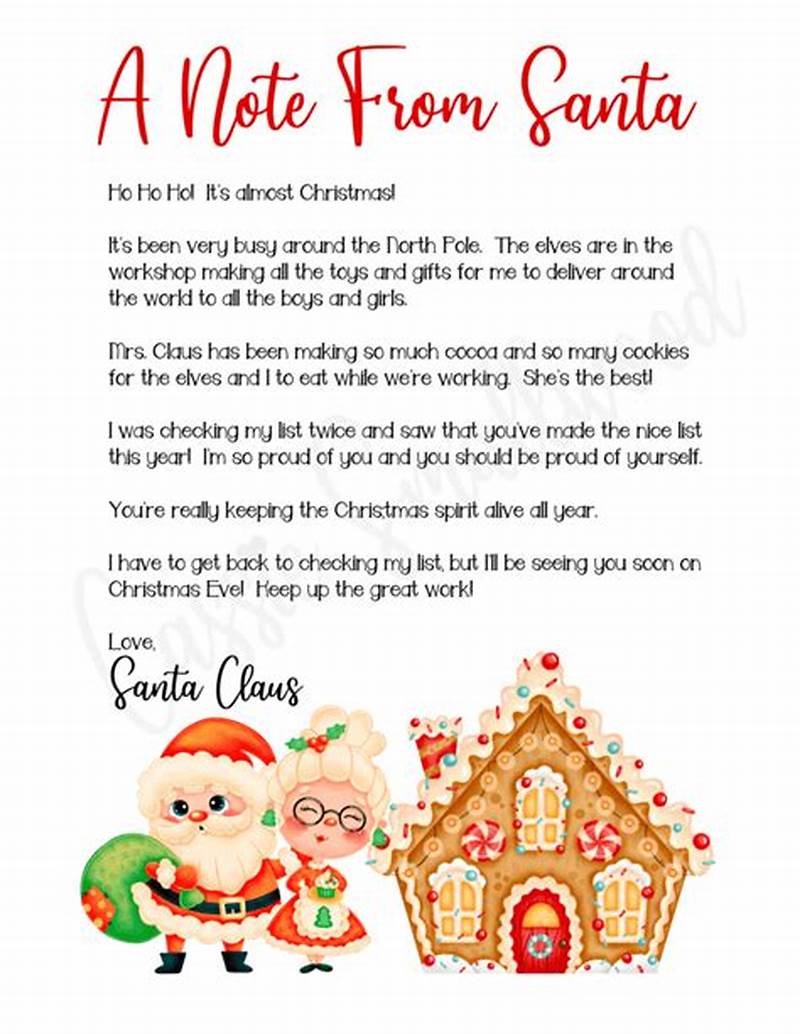 A Note From Santa
Ho Ho Ho! It's almost Christmas!
It's been very busy around the North Pole. The elves are in the
workshop making all the toys and gifts for me to deliver around
the world to all the boys and girls.
Mrs. Claus has been making so much cocoa and so many cookies
for the elves and I to eat while we're working. She's the best!
I was checking my list twice and saw that you've made the nice list
this year! I'm so proud of you and you should be proud of yourself.
You're really keeping the Christmas spirit alive all year.
I have to get back to checking my list, but I'll be seeing you soon on
Christmas Eve! Keep up the great work!
Love,
Santa Claus
Cassie Smallwood